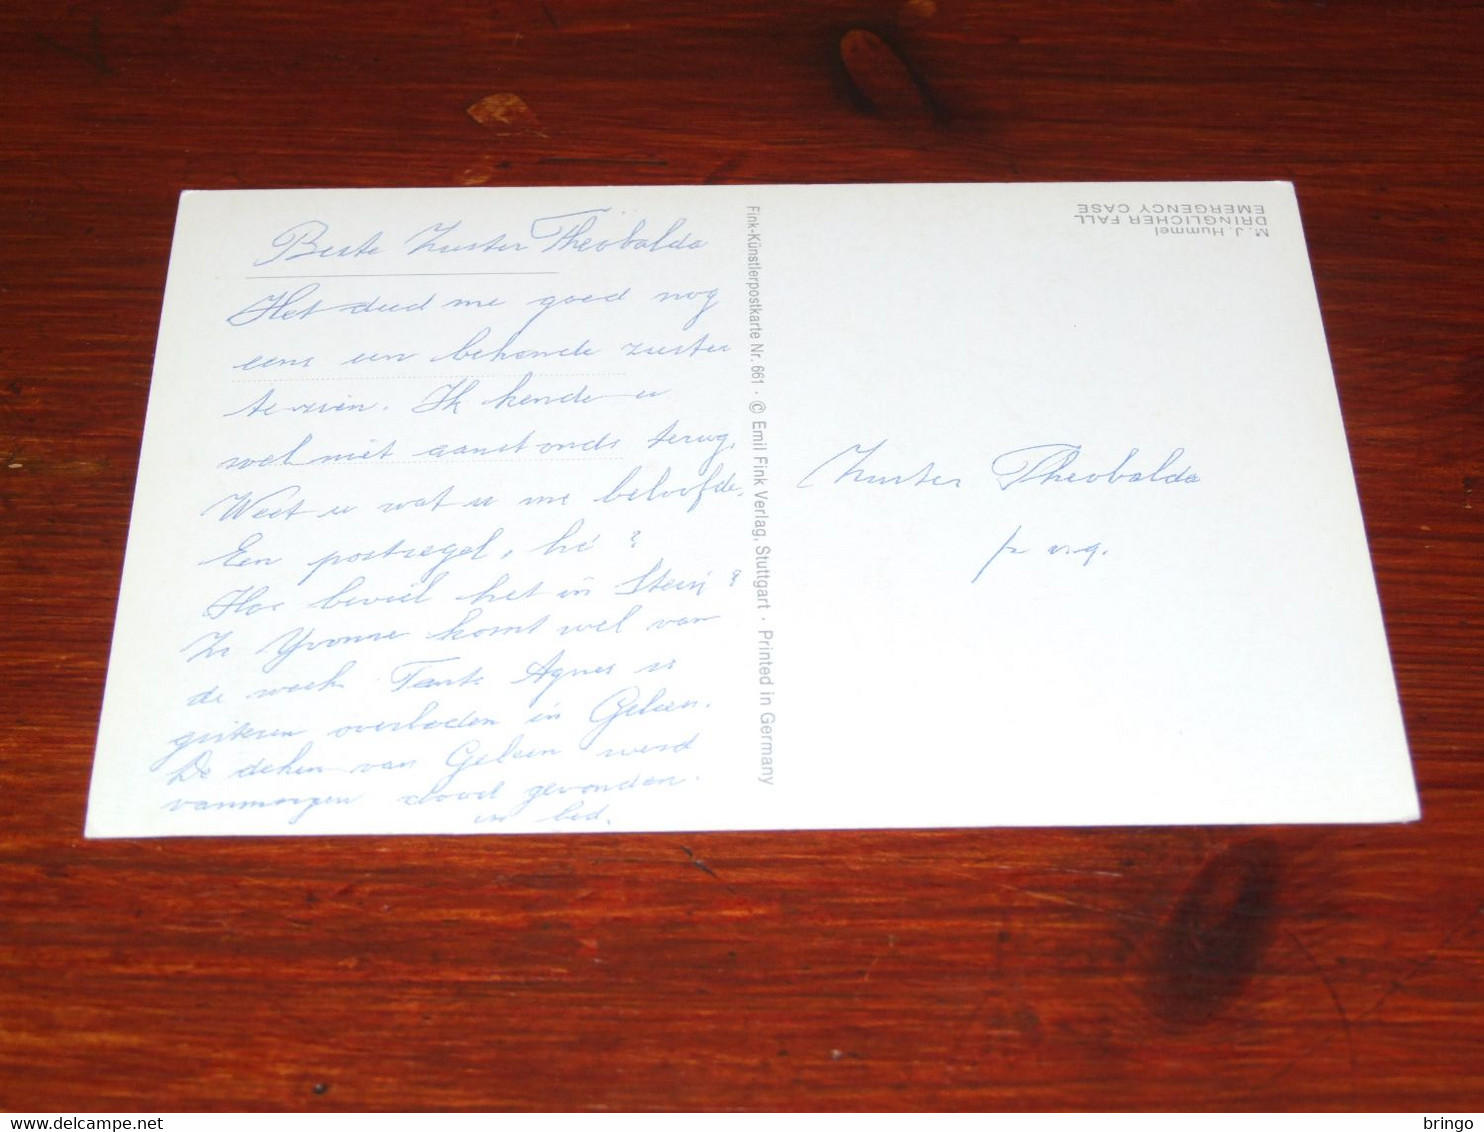 Beste Zuster Theobalda
Het deed me goed nog
eens een bekende zuster
te zien. Ik kende u
wel niet aanstonds terug.
Weet u wat u me beloofde.
Een postzegel, hé?
Hoe beviel het in Stein?
Zr Yvonne komt wel van
de week. Tante Agnes is
gisteren overleden in Geleen.
De deken van Geleen werd
vanmorgen dood gevonden
in bed.
Fink-Künstlerpostkarte Nr. 661 · © Emil Fink Verlag, Stuttgart · Printed in Germany
M. J. Hummel
DRINGLICHER FALL
EMERGENCY CASE
Zuster Theobalda
bringo